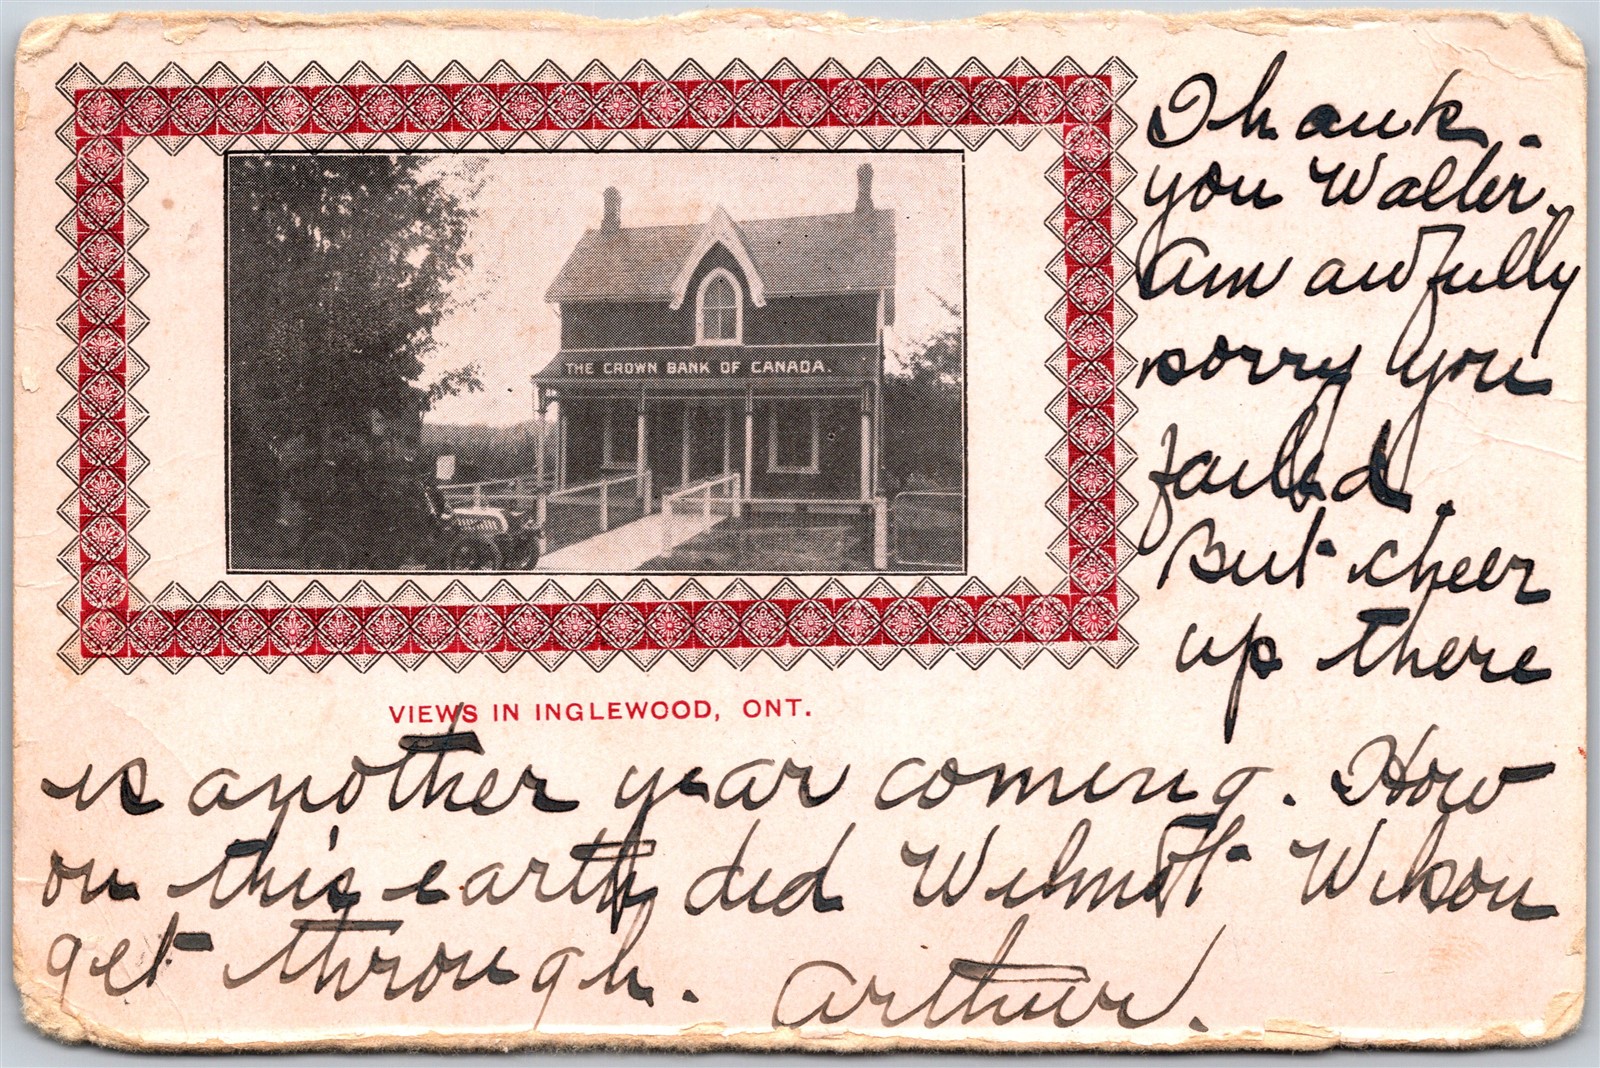 THE CROWN BANK OF CANADA.
VIEWS IN INGLEWOOD, ONT.
Thank
you Walter.
Am awfully
sorry you
failed.
But cheer
up there
is another year coming. How
on this earth did Wilmot Wilson
get through. Arthur.